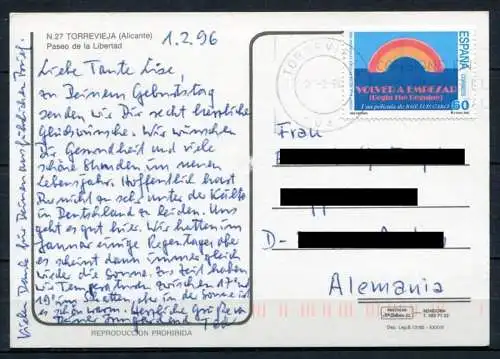 N.27 TORREVIEJA (Alicante)
Paseo de la Libertad
1.2.96
Liebe Tante Lise,
zu Deinem Geburtstag
senden wir Dir recht herzliche
Glückwünsche. Wir wünschen
Dir Gesundheit und viele
schöne Stunden im neuen
Lebensjahr. Hoffentlich hast
Du nicht zu sehr unter der Kälte
in Deutschland zu leiden. Uns
geht es gut hier. Wir hatten im
Januar einige Regentage, aber
es scheint dann immer gleich
wieder die Sonne. Zur Zeit haben
wir Temperaturen zwischen 17° und
19° im Schatten, in der Sonne ist
es schön warm. Herzliche Grüße von
Deiner
REPRODUCCION PROHIBIDA
Vielen Dank für Deinen ausführlichen Brief.
TORREVIEJA
ESPAÑA
CORREOS
VOLVER A EMPEZAR
(Begin the Beguine)
Una película de JOSE LUIS GARCI
60
Frau
D-
Alemania